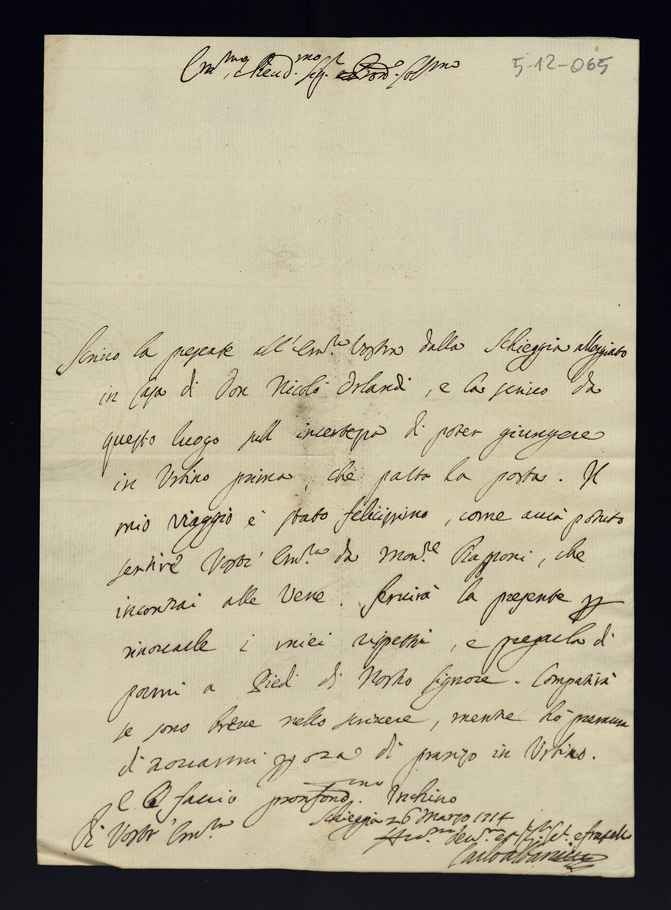 Em.mo, e Reud.mo Sig.r e Pron. Col.mo
5-12-065
Scrivo la presente all'Em.za Vostra dalla Schieggia alloggiato
in casa di Don Nicolò Orlandi, e la scrivo da
questo luogo sull'incertezza di poter giungere
in Urbino prima, che parta la posta. Il
mio viaggio è stato felicissimo, come avrà potuto
sentire Vostr' Em.za da Mons.re Rasponi, che
incontrai alle Vene. Servirà la presente p
rinovarle i miei rispetti, e pregarla di
pormi a Piedi di Nostro Signore. Compatirà
se sono breve nello scrivere, mentre hò premura
di trovarmi p ora di pranzo in Urbino.
E Le faccio profond.mo Inchino
Schieggia 26 Marzo 1714
Di Vostr' Em.za
Carlo Albani